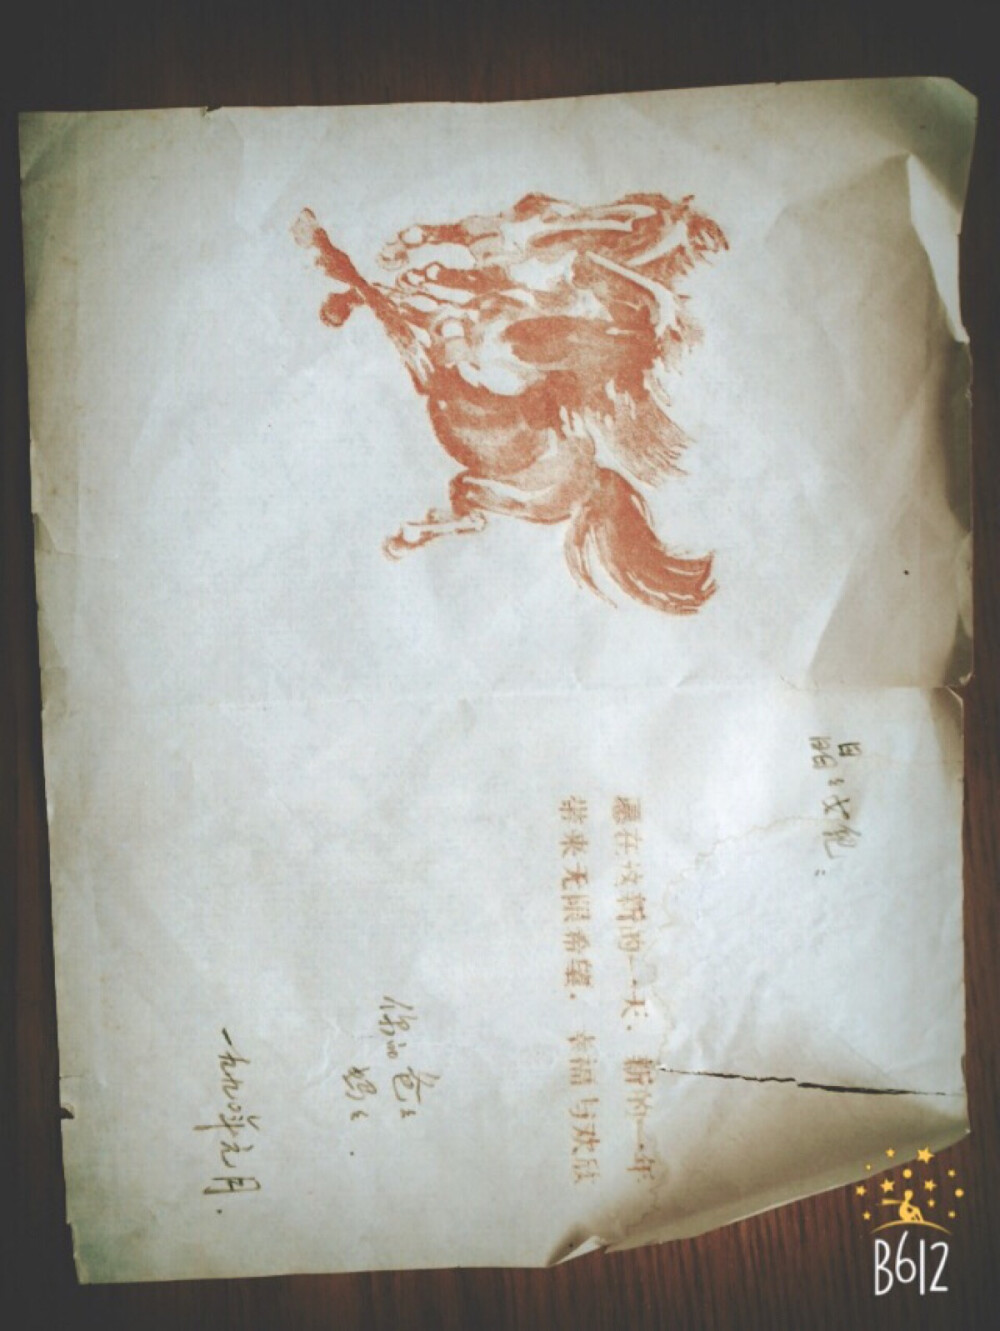 晶晶女儿：
愿在这新的一天，新的一年
带来无限希望，幸福与欢欣
你的爸爸
妈妈.
一九九〇年元月.
B612